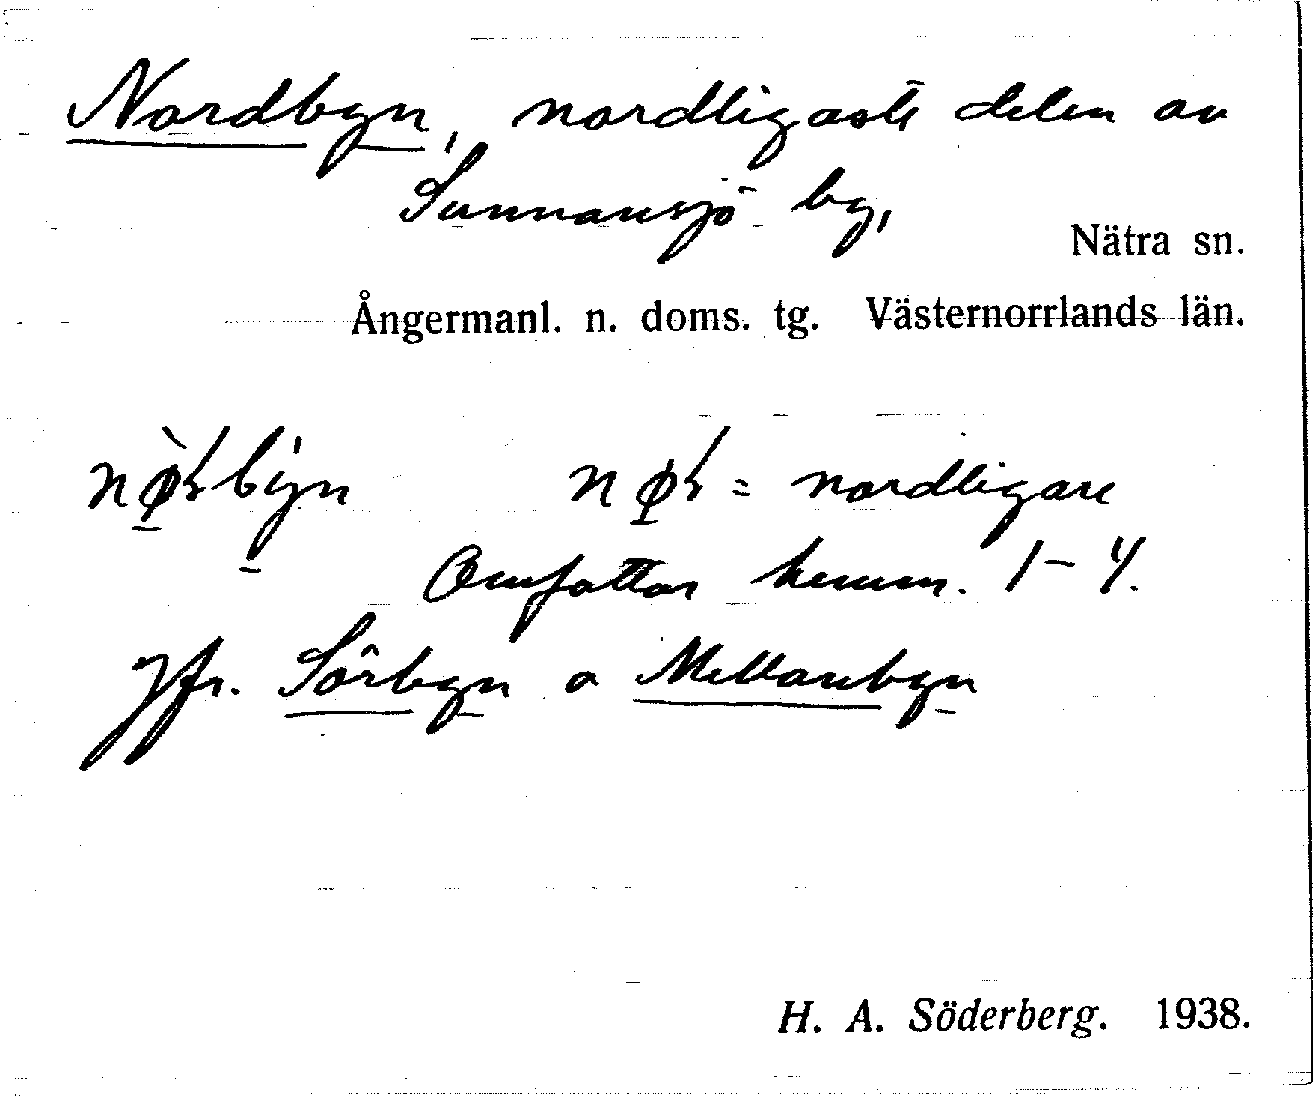 Nordbyn, nordligaste delen av
Sunnansjö by,
Nätra sn.
Ångermanl. n. doms. tg. Västernorrlands län.
= nordligare
Omfattar hemm. 1-4.
Jfr. Sörbyn o Mellanbyn
H. A. Söderberg. 1938.